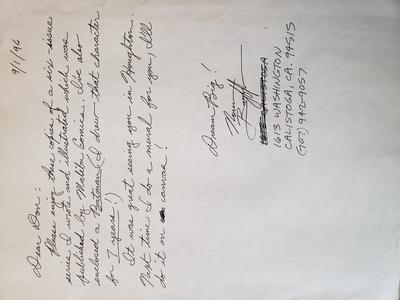 9/1/96
Dear Don:
Please enjoy these copies of a six-issue
series I wrote and illustrated which was
published by Malibu Comics. I've also
enclosed a Batman (I drew that character
for 7 years!)
It was great seeing you in Houghton.
Next time I do a mural for you, I'll
do it on canvas!
Dream Big!
1613 WASHINGTON
CALISTOGA, CA. 94515
(707) 942-9057